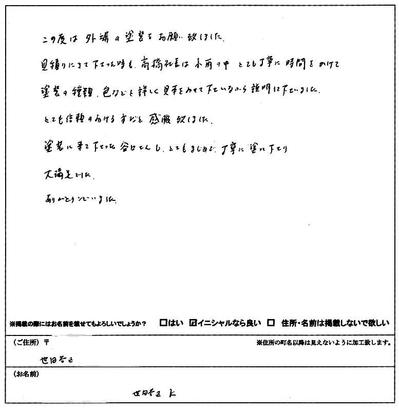 この度は 外壁の塗装をお願い致しました。
見積りにきて下さった時も、高橋社長は小雨の中 とても丁寧に時間をかけて
塗装の種類、色などを詳しく見本をみせて下さいながら説明下さいました。
とても信頼のおける方だと感服致しました。
塗装に来て下さった
とてもまじめで、丁寧に塗って下さり
大満足でした。
ありがとうございました。
※掲載の際にはお名前を載せてもよろしいでしょうか？ □はい ☑イニシャルなら良い □ 住所・名前は掲載しないで欲しい
（ご住所）〒 ※住所の町名以降は見えないように加工致します。
世田谷区
（お名前）
世田谷区 K